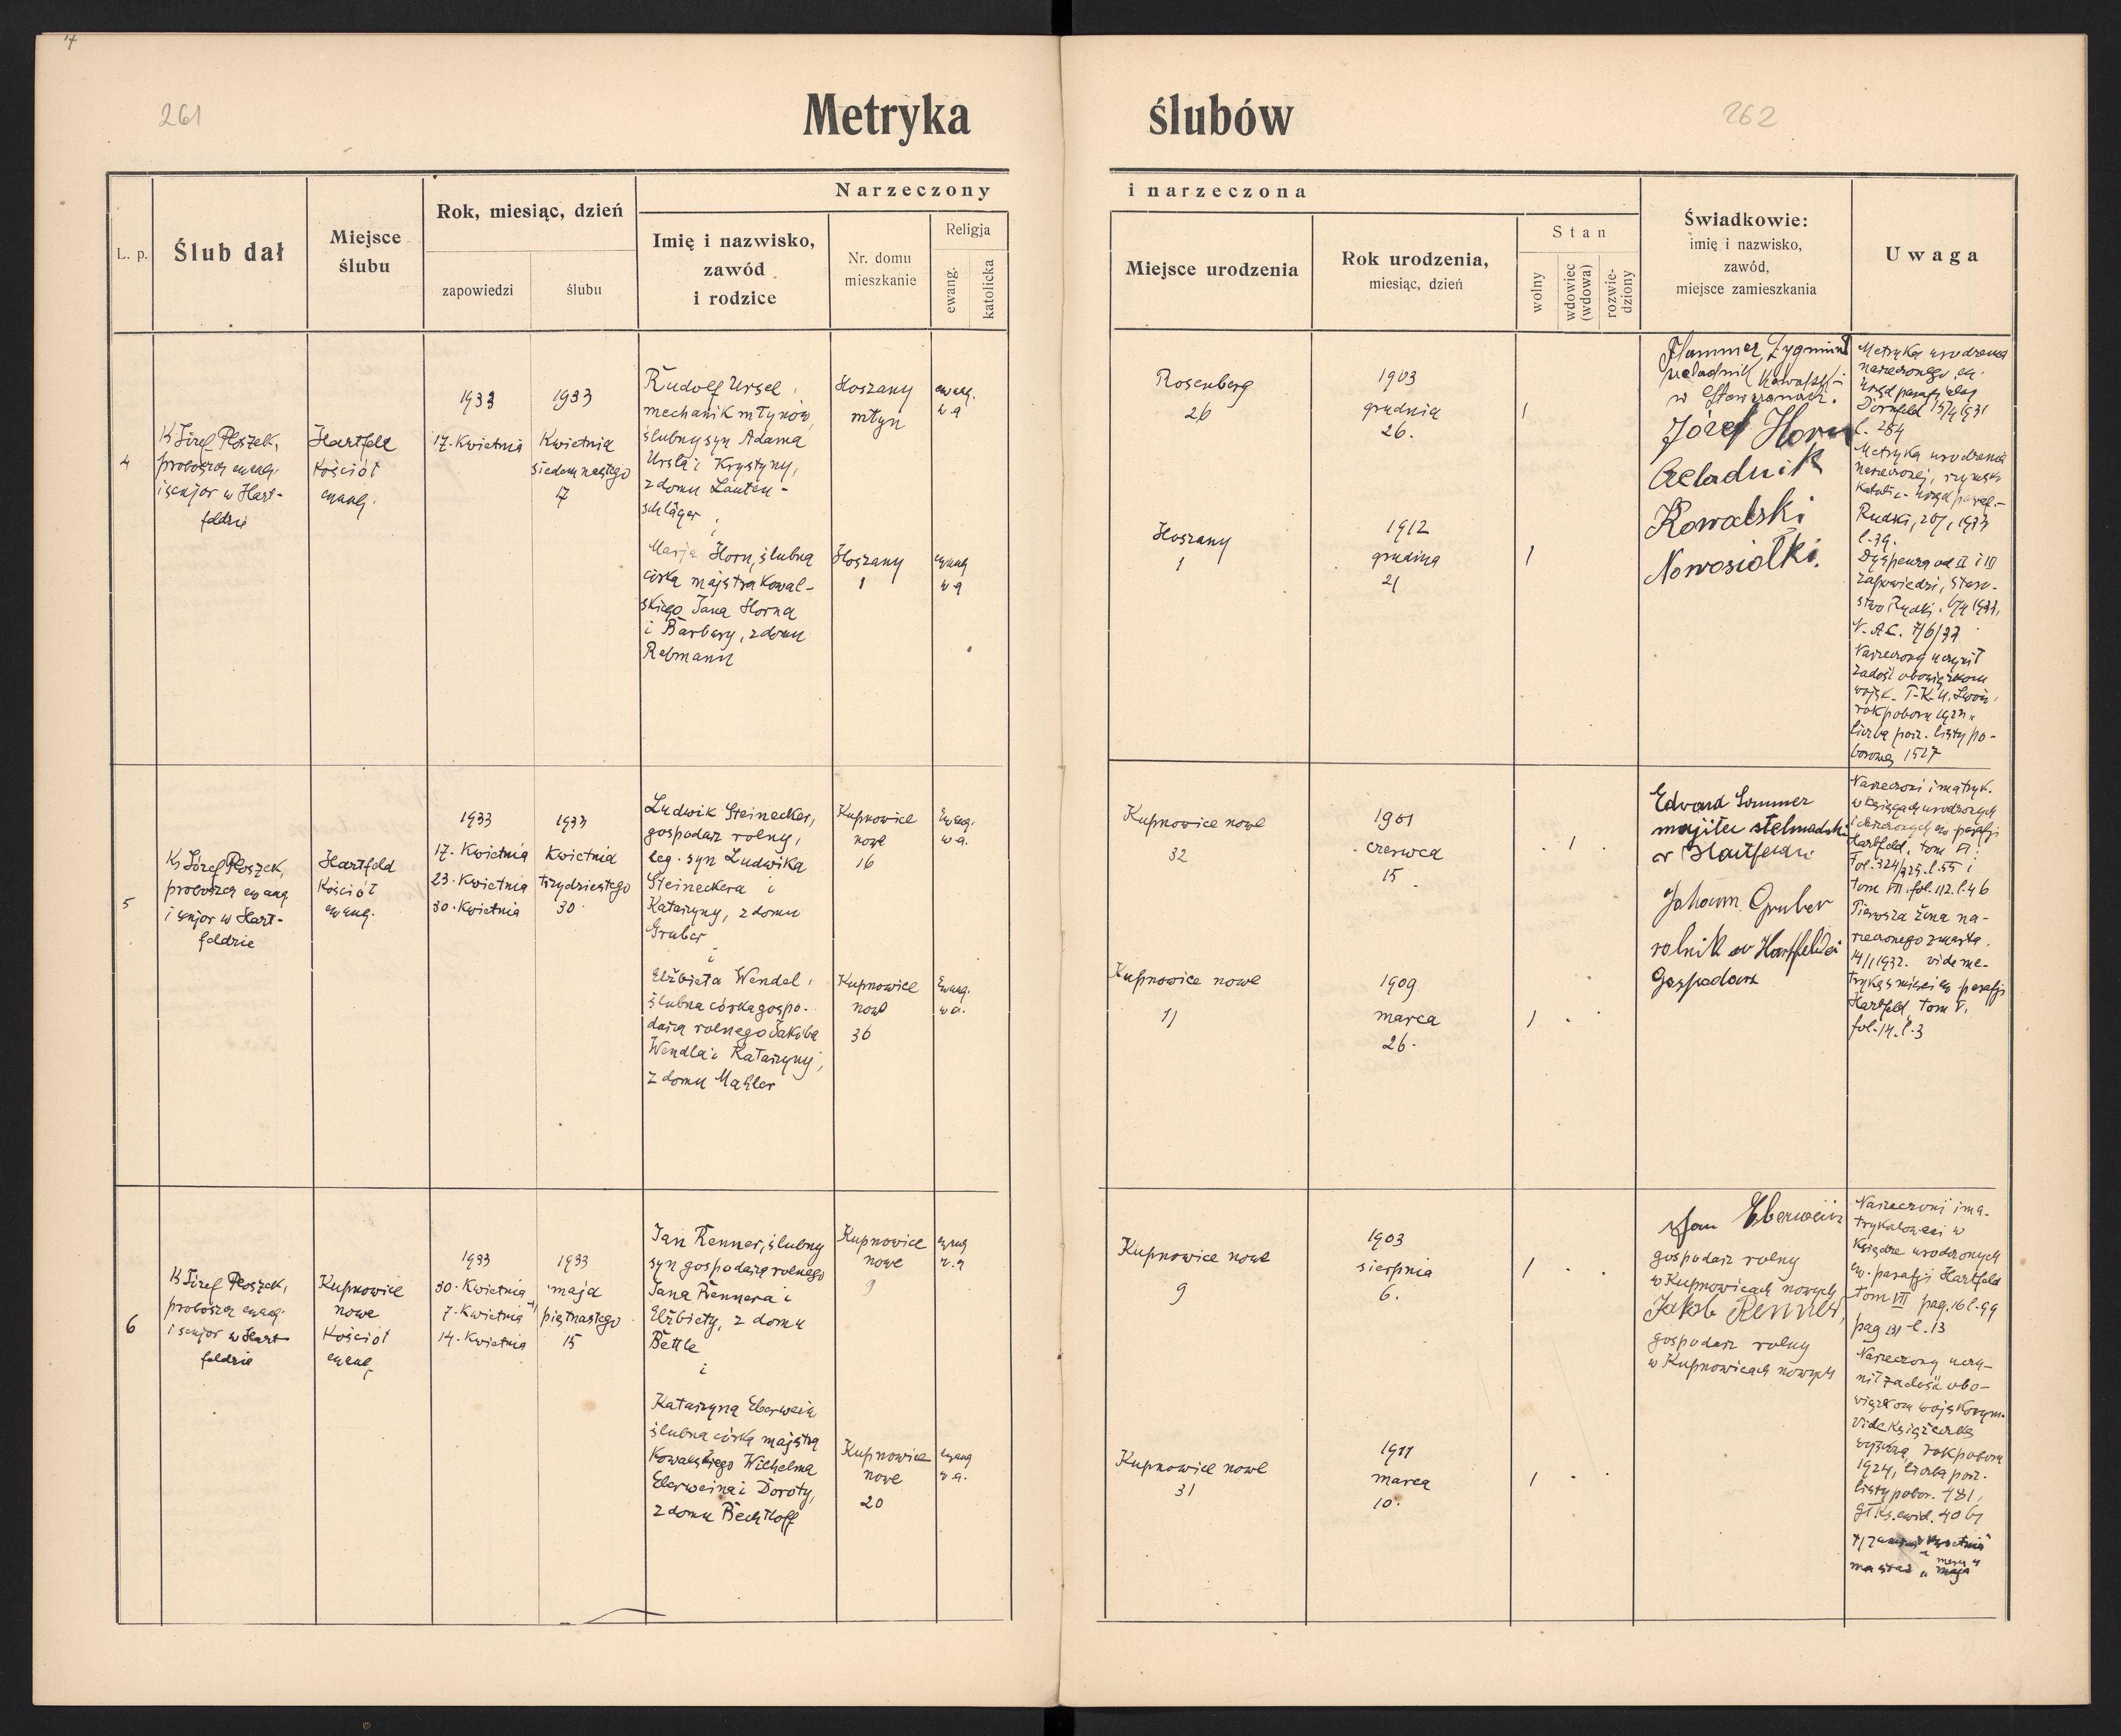 261
Metryka ślubów
262
Narzeczony i narzeczona
L. p.
Ślub dał
Miejsce
ślubu
Rok, miesiąc, dzień
zapowiedzi
ślubu
Imię i nazwisko,
zawód
i rodzice
Nr. domu
mieszkanie
Religja
ewang.
katolicka
Miejsce urodzenia
Rok urodzenia,
miesiąc, dzień
Stan
wolny
wdowiec
(wdowa)
rozwie-
dziony
Świadkowie:
imię i nazwisko,
zawód,
miejsce zamieszkania
Uwaga
4
Ks Józef Płoszek,
proboszcz ewang.
i senjor w Hart-
feldzie
Hartfeld
Kościół
ewang.
1933
17. Kwietnia
1933
Kwietnia
siedemnastego
17
Rudolf Ursel,
mechanik młynów,
ślubny syn Adama
Ursla i Krystyny,
z domu Lauten-
schläger
i
Marja Horn, ślubna
córka majstra kowal-
skiego Jana Horna
i Barbary, z domu
Rebmann
Hoszany
młyn
ewang.
w a
Hoszany
1
ewang
w a
Rosenberg
26
1903
grudnia
26.
1
Hoszany
1
1912
grudnia
21
1
Hammer, Zygmunt
czeladnik kowalski
w
Józef Horn
Czeladnik
Kowalski
Nowosiółki.
Metryka urodzenia
narzeczonego, ew.
Urząd parafjalny
Dornfeld 15/4 1931
l. 284
Metryka urodzenia
narzeczonej, rzymsko
Katolic. Urząd paraf.-
Rudki, 20/1 1933
l. 39.
Dyspenza od II i III
zapowiedzi, Staro-
stwo Rudki. 6/4 1933,
N. AC. 7/6/33
Narzeczony uczynił
zadość obowiązkom
wojsk. P.K.U. Lwów,
rok poboru 1924
liczba porz. listy po-
borowej 1527
5
Ks Józef Płoszek,
proboszcz ewang
i senjor w Hart-
feldzie
Hartfeld
Kościół
ewang.
1933
17. Kwietnia
23. Kwietnia
30. Kwietnia
1933
Kwietnia
trzydziestego
30
Ludwik Steinecker,
gospodarz rolny,
leg. syn Ludwika
Steineckera i
Katarzyny, z domu
Gruber
i
Elżbieta Wendel,
ślubna córka gospo-
darza rolnego Jakóba
Wendla i Katarzyny,
z domu Mahler
Kupnowice
nowe
16
Ewang.
w a.
Kupnowice
nowe
36
Ewang.
w a.
Kupnowice nowe
32
1901
czerwca
15
1
Kupnowice nowe
11
1909
marca
26.
1
Edward Sommer
majster stelmachski
w Hartfeldzie
Johann Gruber
rolnik w Hartfeldzie
Gospodarz
Narzeczeni imatryk.
w księgach urodzonych
i chrzczonych ew parafji
Hartfeld, tom VI:
Fol. 324/325. l. 55 i
tom VII. fol. 112. l. 46
Pierwsza żona na-
rzeczonego zmarła.
14/1 1932. vide me-
trykę śmierci ew parafji
Hartfeld, tom V.
fol. 14. l. 3
6
Ks Józef Płoszek,
proboszcz ewang.
i senjor w Hart-
feldzie
Kupnowice
nowe
Kościół
ewang.
1933
30. Kwietnia
7. Kwietnia
14. Kwietnia
1933
maja
piętnastego
15
Jan Renner, ślubny
syn gospodarza rolnego
Jana Rennera i
Elżbiety, z domu
Bettle
i
Katarzyna Eberwein
ślubna córka majstra
kowalskiego Wilhelma
Eberweina i Doroty,
z domu Bechtloff
Kupnowice
nowe
9
ewang
w. a
Kupnowice
nowe
20
ewang
w a.
Kupnowice nowe
9
1903
sierpnia
6.
1
Kupnowice nowe
31
1911
marca
10.
1
Jan Eberwein
gospodarz rolny
w Kupnowicach nowych
Jakob Renner,
gospodarz rolny
w Kupnowicach nowych
Narzeczeni ima-
trykulowani w
Księdze urodzonych
ew. parafji Hartfeld
tom VII pag. 16 l. 99
pag 131 l. 13
Narzeczony uczy-
nił zadość obo-
wiązkom wojskowym.
Vide książeczka
wojskowa, rok poboru
1924, liczba porz.
listy pobor. 481,
gł. ks. ewid. 4061
ma stać "maja"